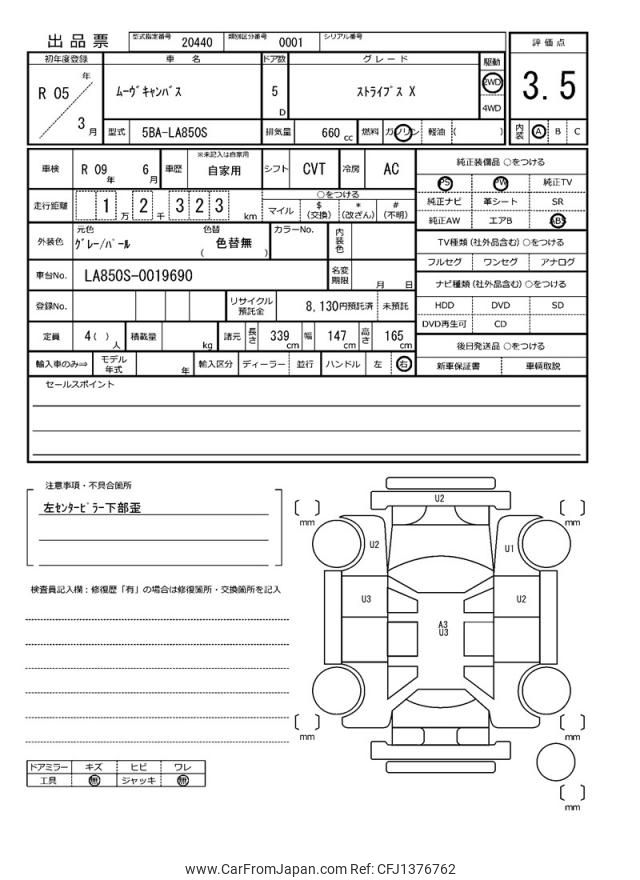 出品票 型式指定番号 20440 類別区分番号 0001 シリアル番号
評価点
3.5
内装 A B C
初年度登録 車名 ドア数 グレード 駆動
R 05 年 3 月
ムーヴキャンバス 5 D ストライプス X 2WD 4WD
型式 5BA-LA850S 排気量 660 cc 燃料 ガソリン 軽油 ( )
車検 R 09 年 6 月 車歴 ※未記入は自家用 自家用 シフト CVT 冷房 AC
走行距離 1 万 2 千 3 2 3 km
○をつける
マイル $ (交換) * (改ざん) # (不明)
外装色 元色 グレー/パール 色替 ( 色替無 ) カラーNo. 内装色
車台No. LA850S-0019690 名変期限 月 日
登録No. リサイクル預託金 8,130円預託済 未預託
定員 4( )人 積載量 kg 諸元 長さ 339 cm 幅 147 cm 高さ 165 cm
輸入車のみ⇒ モデル年式 年 輸入区分 ディーラー 並行 ハンドル 左 右
純正装備品 ○をつける
PS PW 純正TV
純正ナビ 革シート SR
純正AW エアB ABS
TV種類 (社外品含む) ○をつける
フルセグ ワンセグ アナログ
ナビ種類 (社外品含む) ○をつける
HDD DVD SD
DVD再生可 CD
後日発送品 ○をつける
新車保証書 車輌取説
セールスポイント
注意事項・不具合箇所
左センターピラー下部歪
検査員記入欄：修復歴「有」の場合は修復箇所・交換箇所を記入
ドアミラー キズ ヒビ ワレ
工具 無 ジャッキ 無
U2
mm mm
U2 U1
U3 U2
A3
U3
mm mm
mm
www.CarFromJapan.com Ref: CFJ1376762